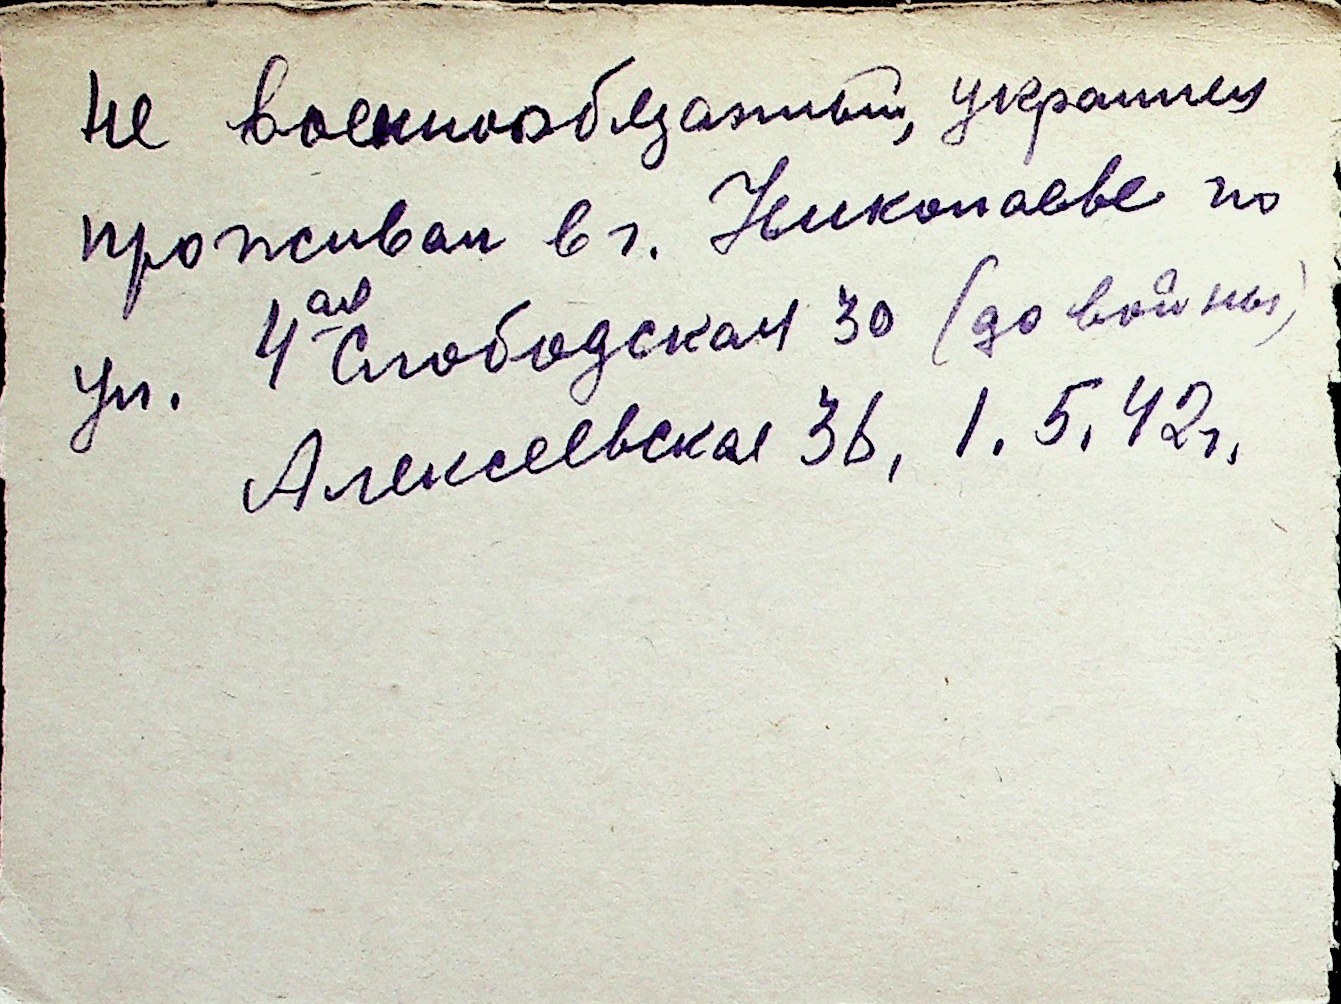 не военнообязанный, украинец
проживал в г. Николаеве по
ул. 4ая Слободская 30 (до войны)
Алексеевская 36, 1.5.42г.